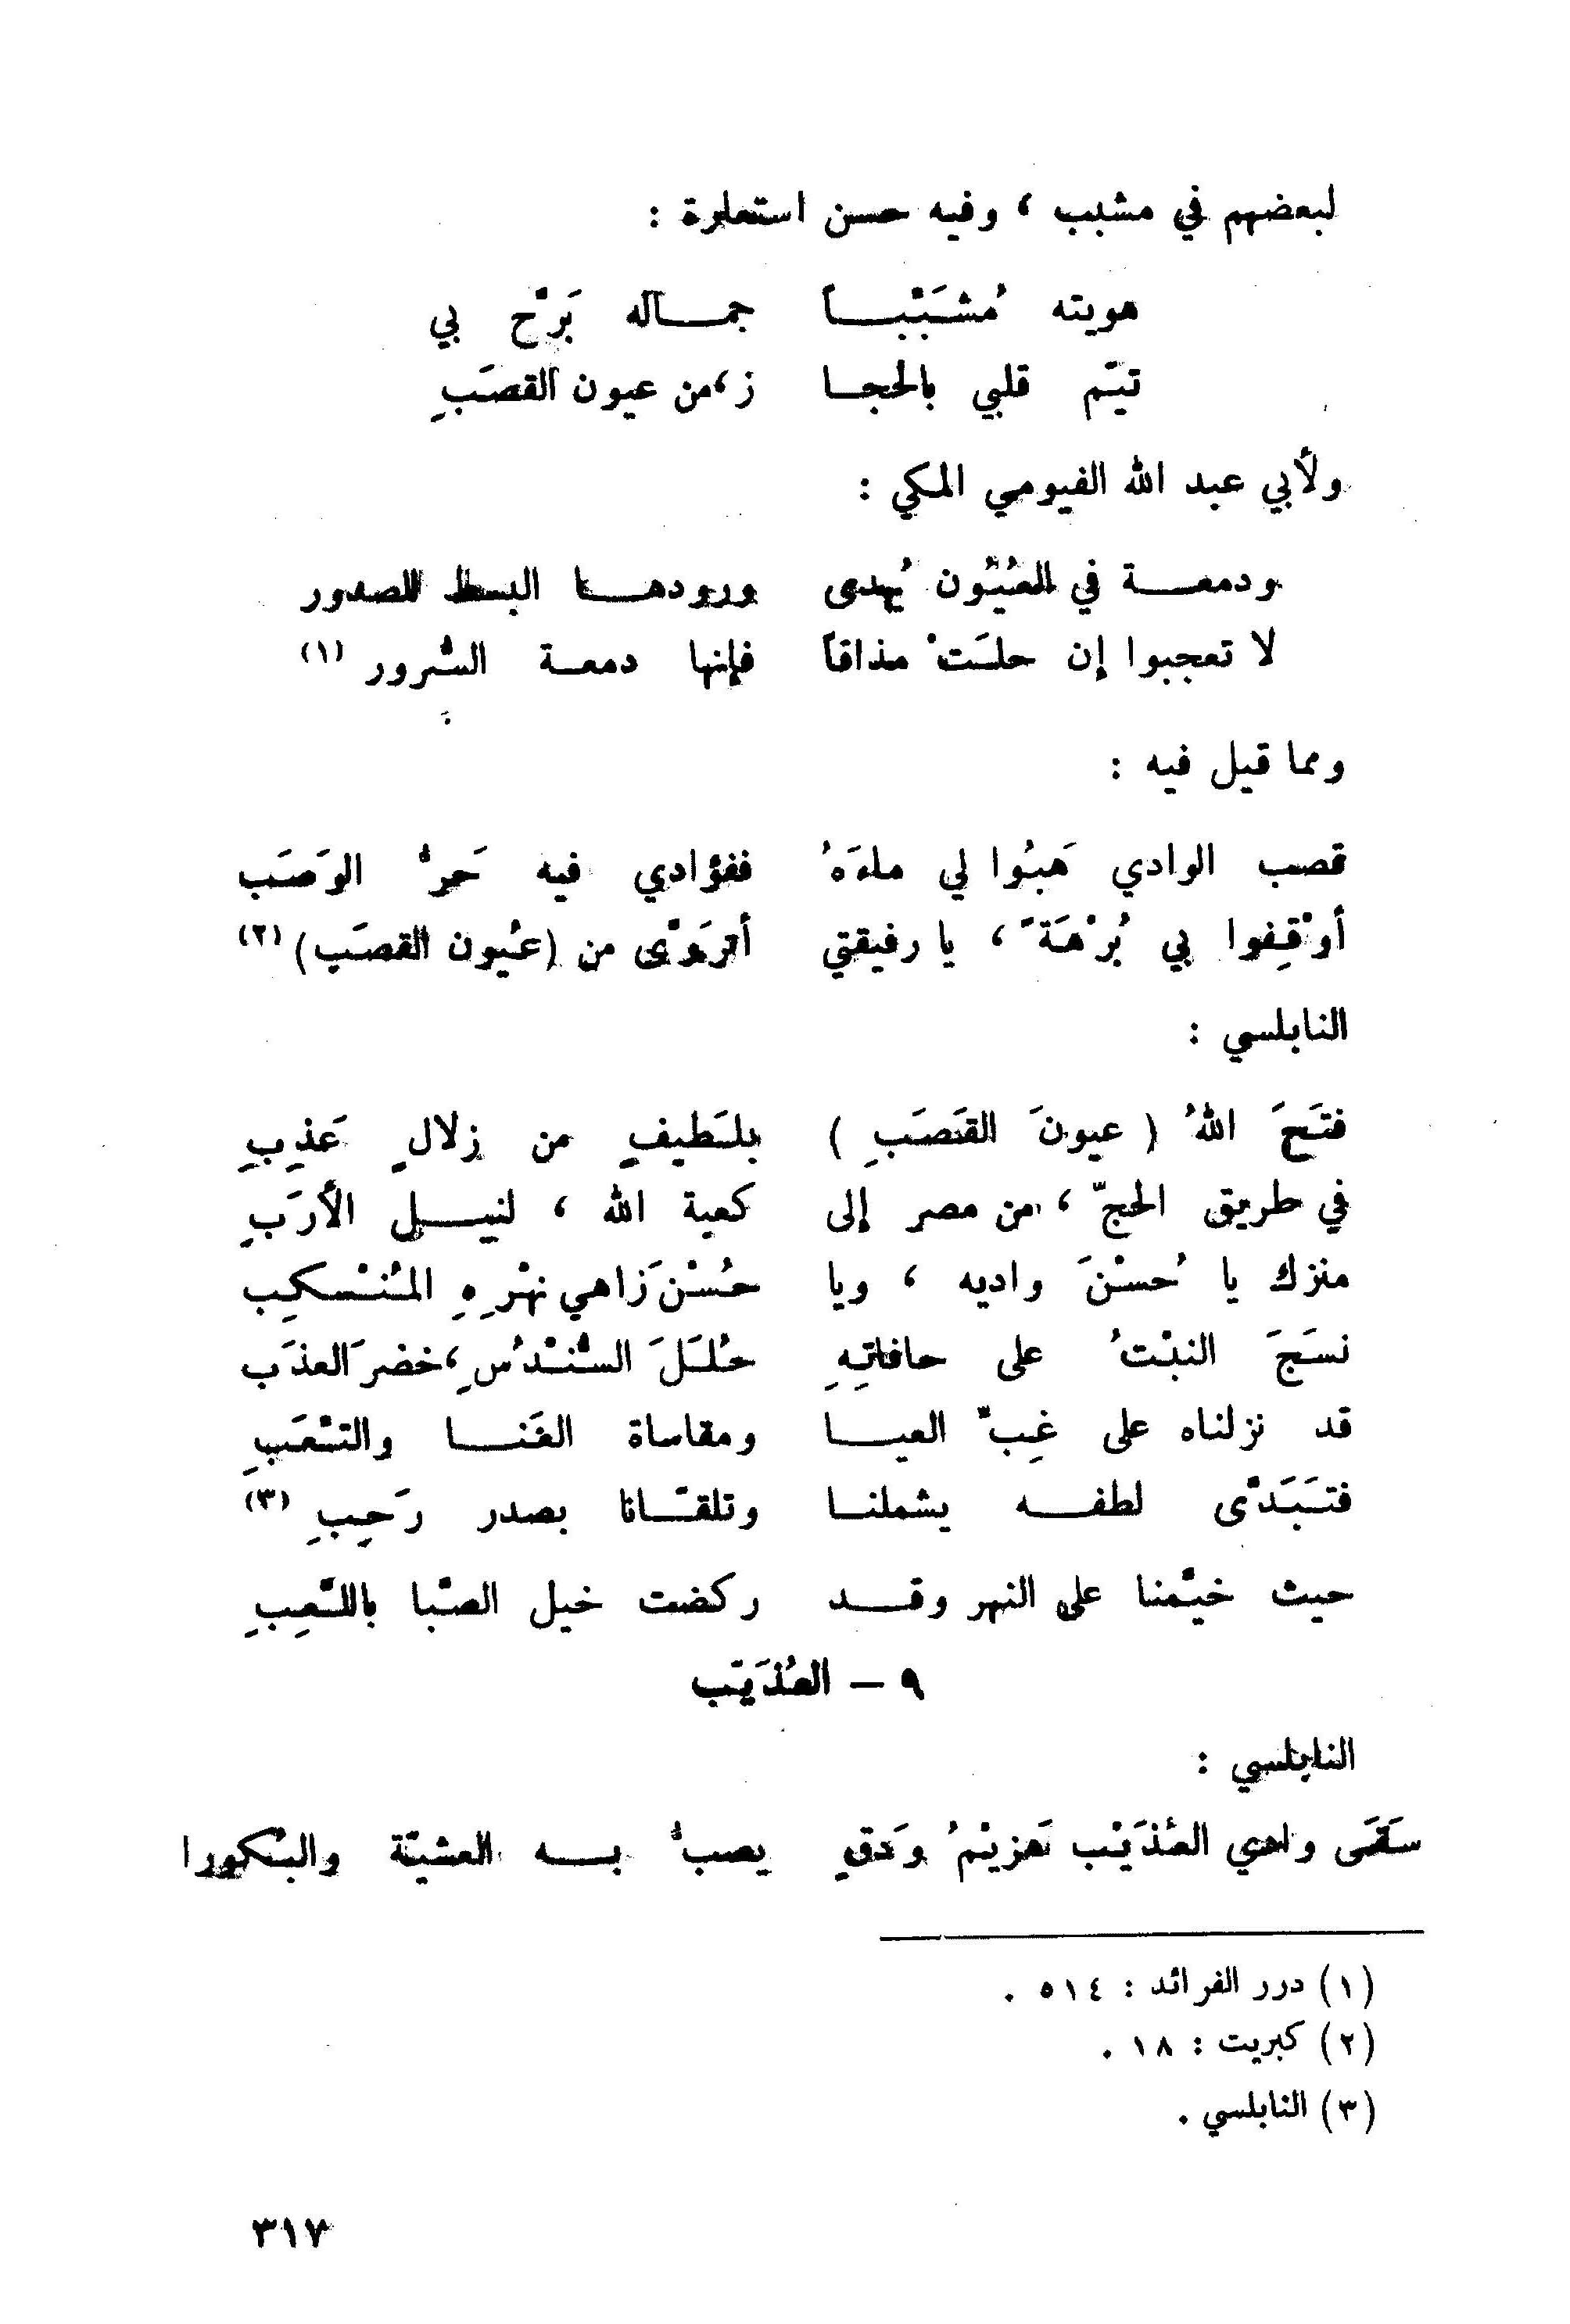 لبعضهم في مشبب ، وفيه حسن استعارة :
هويته مُشَبِّبــاً جمــاله بَرَّح بي
تيّم قلبي بالحجــا ز ، من عيون القصَبِ
ولأبي عبد الله الفيومي المكي :
ودمعــة في العُيُون يُهدى ورودهــا البسط للصدور
لا تعجبوا إن حلَتْ مذاقاً فإنها دمعـة السُّرور (١)
ومما قيل فيه :
قصب الوادي هَبُوا لي ماءَهُ ففؤادي فيه حَرُّ الوَصَب
أوْقِفوا بي بُرْهَةً ، يا رفيقتي أتروَّى من (عُيون القصَبِ) (٢)
النابلسي :
فتَحَ اللهُ ( عيونَ القَصَبِ ) بلَطيفٍ من زلالٍ عَذِبِ
في طريق الحجّ ، من مصر إلى كعبة الله ، لنيــل الأرَبِ
منزك يا حُسْنَ واديه ، ويا حُسْنَ زاهي نهْرِهِ المُنْسكِب
نسَجَ النبْتُ على حافاتِهِ حُلَلَ السُّنْدُسِ ، خضرَ العذَب
قد نزلناه على غِبِّ العيــا ومقاساة العَنــا والتعَبِ
فتَبَدَّى لطفــه يشملنــا وتلقــّانا بصدر رَحِبِ (٣)
حيث خيّمنا على النهر وقــد ركضت خيل الصَّبا باللَّعِبِ
٩ – العُذَيّب
النابلسي :
سَقَى وادي العُذَيْب هَزيْمُ وَدقٍ يصبُّ بــه العشيّة والبُكورا
(١) درر الفرائد : ٥١٤ .
(٢) كبريت : ١٨ .
(٣) النابلسي .
٣١٧